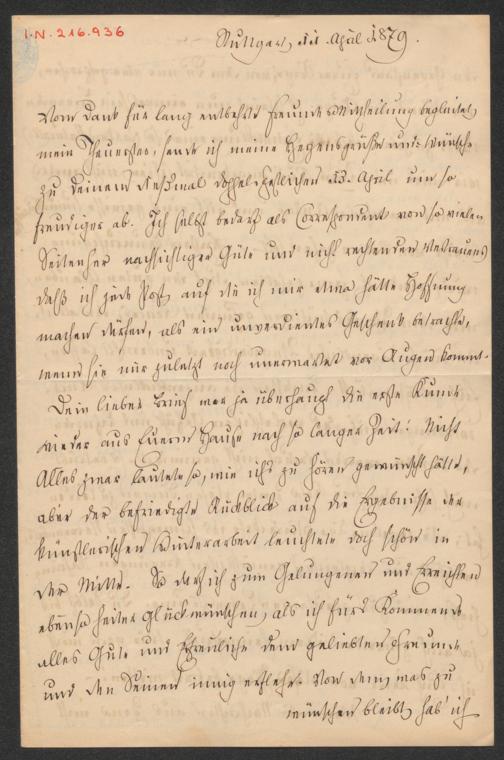 I.N. 216.936
Stuttgart, 11. April 1879.
Vom Dank für lang entbehrte Freundes Mittheilung begleitet,
mein Theuerster, sende ich meine Segensgrüße und Wünsche
zu Deinem dießmal doppelfestlichen 13. April um so
freudiger ab. Ich selbst bedarf als Correspondent von so vielen
Seiten her nachsichtiger Güte und nicht rechtenden Vertrauens,
daß ich jede Post, auf die ich mir etwa hätte Hoffnung
machen dürfen, als ein unverdientes Geschenk betrachte,
wenn sie mir zuletzt noch unerwartet vor Augen kommt.
Dein lieber Brief war ja überhaupt die erste Kunde
wieder aus Euerm Hause nach so langer Zeit! Nicht
Alles zwar lautete so, wie ich's zu hören gewünscht hätte,
aber der befriedigte Rückblick auf die Ergebnisse der
künstlerischen Winterarbeit leuchtete doch schön in
der Mitte. So darf ich zum Gelungenen und Erreichten
ebenso heiter Glück wünschen, als ich für's Kommende
alles Gute und Erfreuliche dem geliebten Freunde
und den Seinen innig erflehe. Von dem, was zu
wünschen bleibt, hab' ich